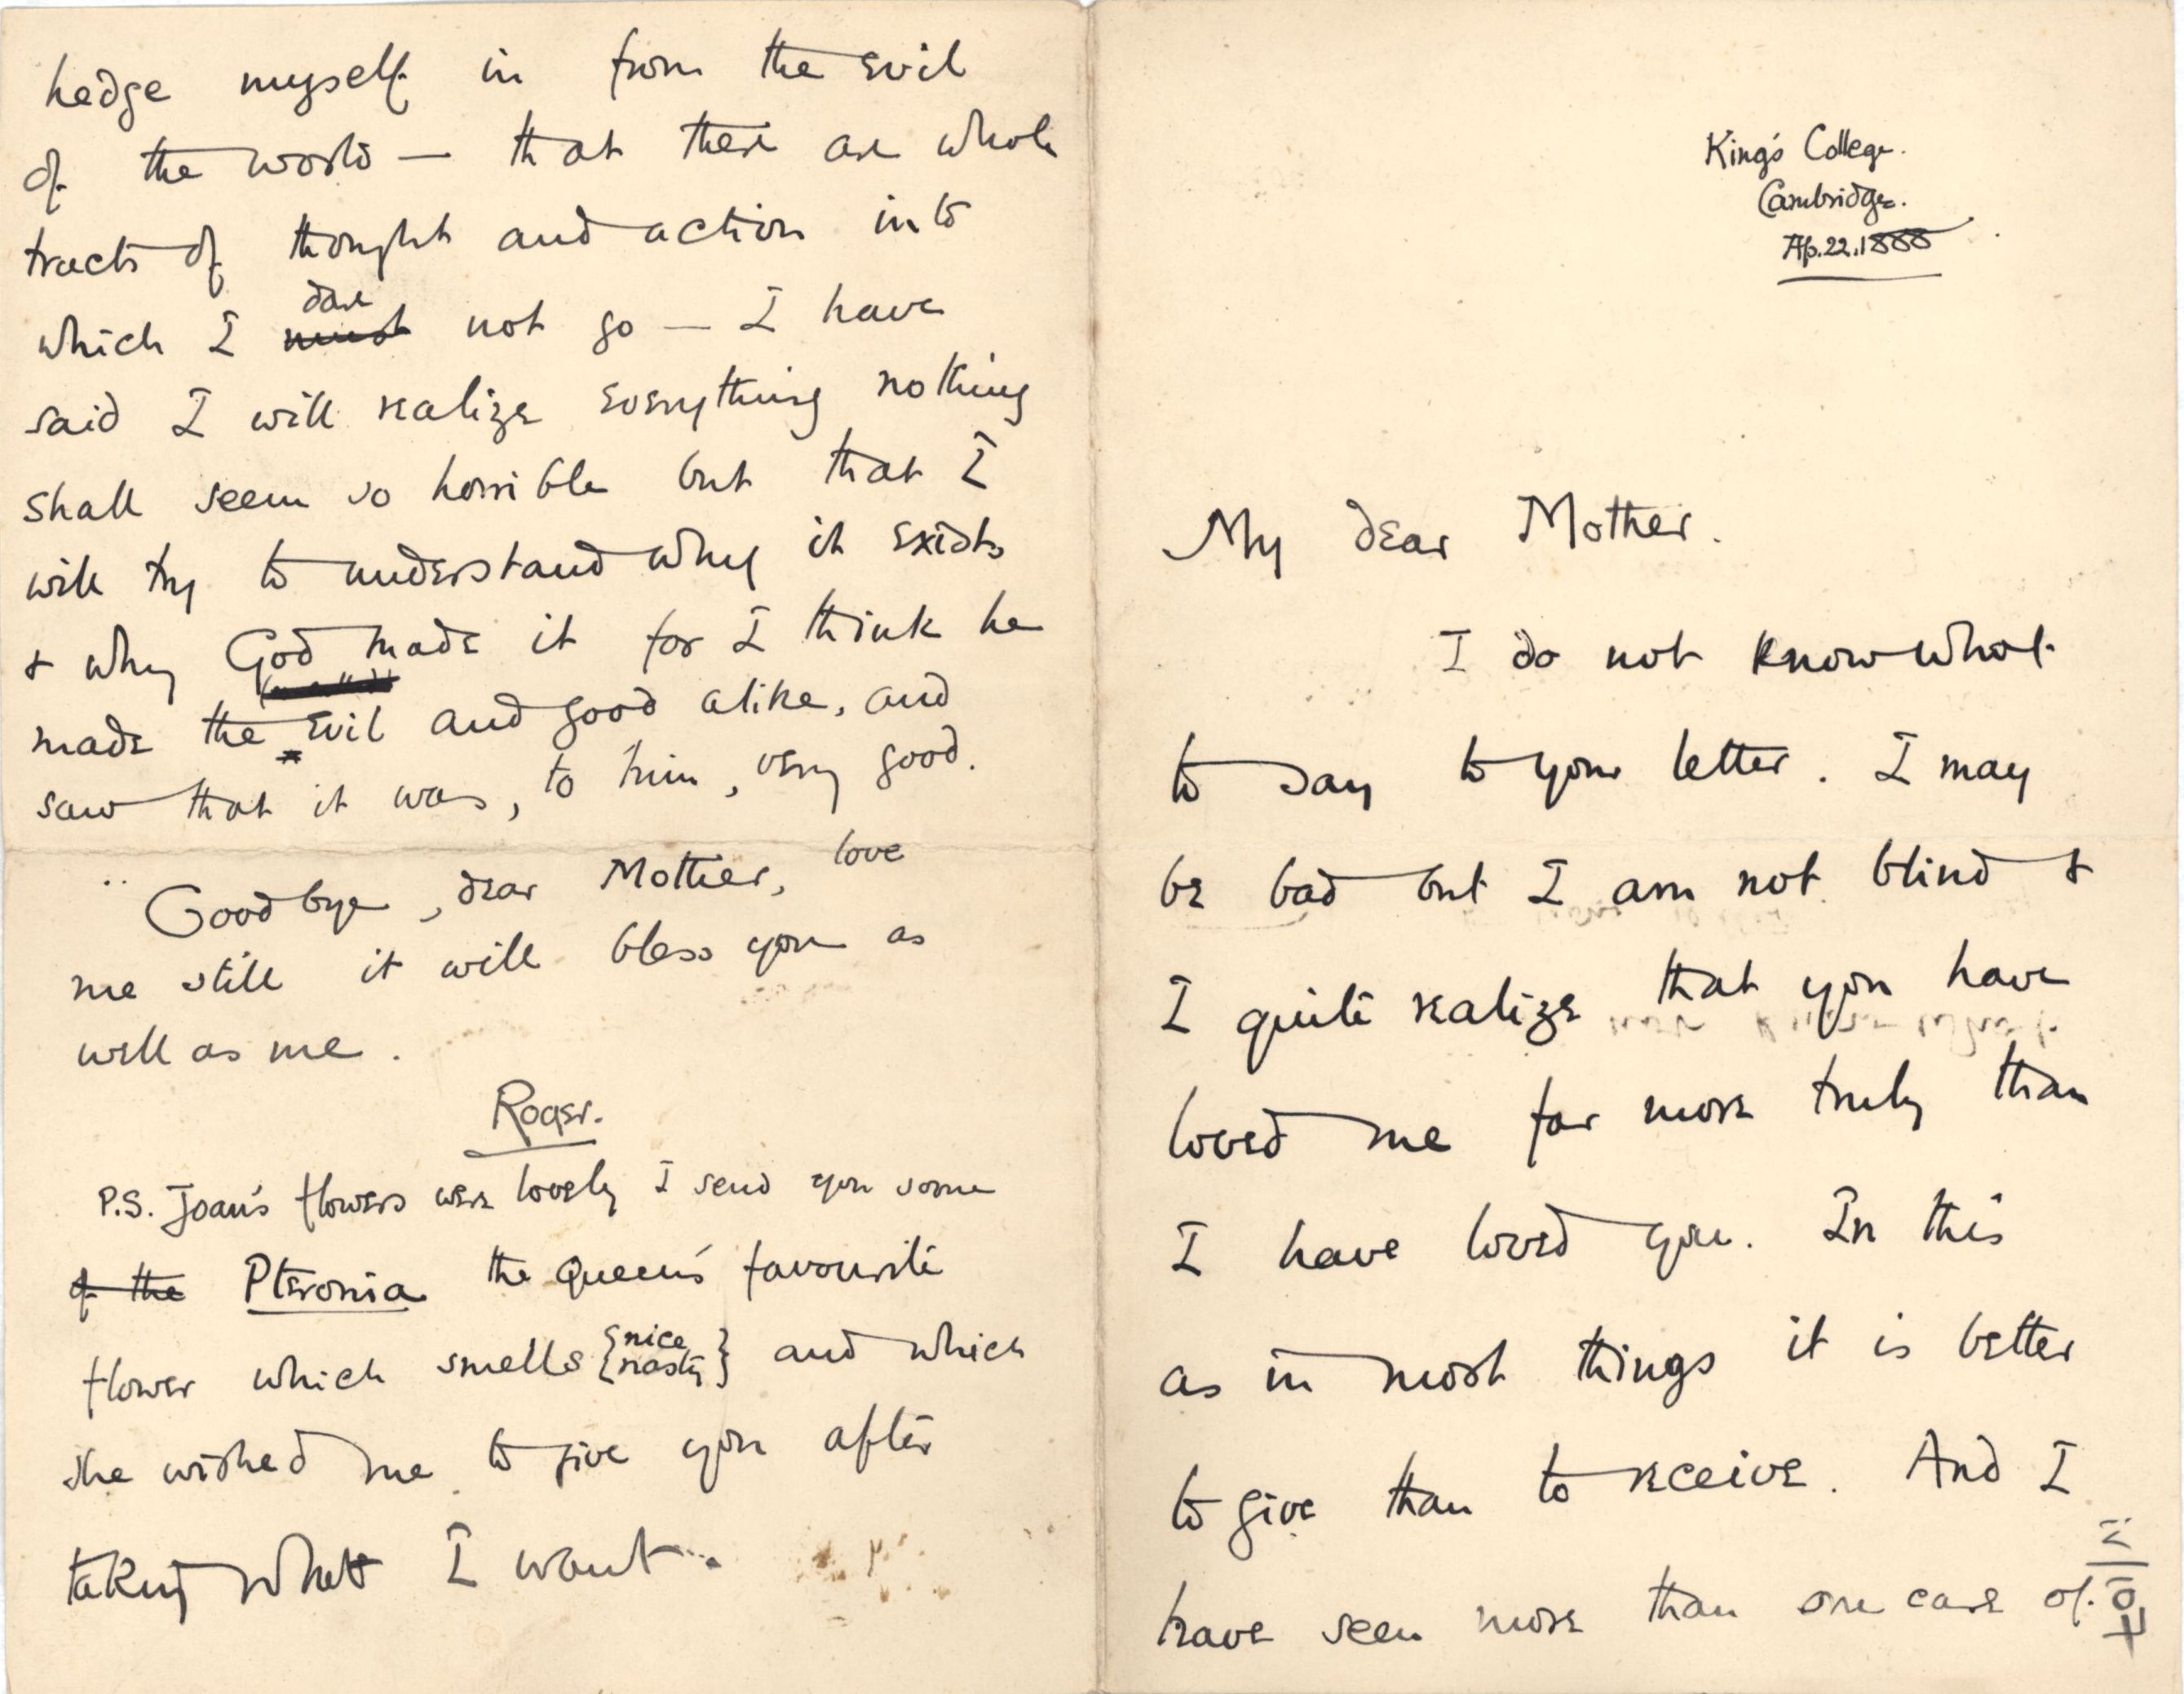 King's College.
Cambridge.
Ap. 22. 1888
My dear Mother.
I do not know what
to say to your letter. I may
be bad but I am not blind &
I quite realize that you have
loved me far more truly than
I have loved you. In this
as in most things it is better
to give than to receive. And I
have seen more than one case of
hedge myself in from the evil
of the world — that there are whole
tracts of thought and action into
dare
which I must not go — I have
said I will realize everything nothing
shall seem so horrible but that I
will try to understand why it exists
& why God made it for I think he
made the evil and good alike, and
saw that it was, to him, very good.
Goodbye, dear Mother, love
me still it will bless you as
well as me.
Roger.
P.S. Joan's flowers were lovely I send you some
of the Pteronia the Queen's favourite
flower which smells {nice
nasty} and which
she wished me to give you after
taking what I want